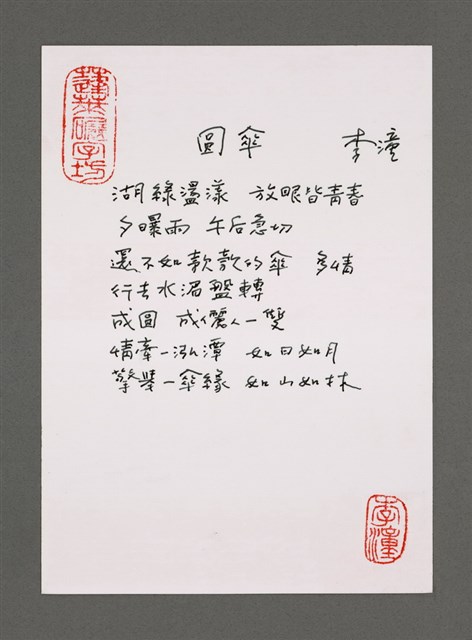 蓬萊碾字坊
圓傘 李潼
湖綠溫漾 放眼皆青春
夕曝雨 午后急切
還不如款款的傘 多情
行去水湄盤轉
成圓 成儷人一雙
情牽一泓潭 如日如月
擎舉一傘緣 如山如林
李潼